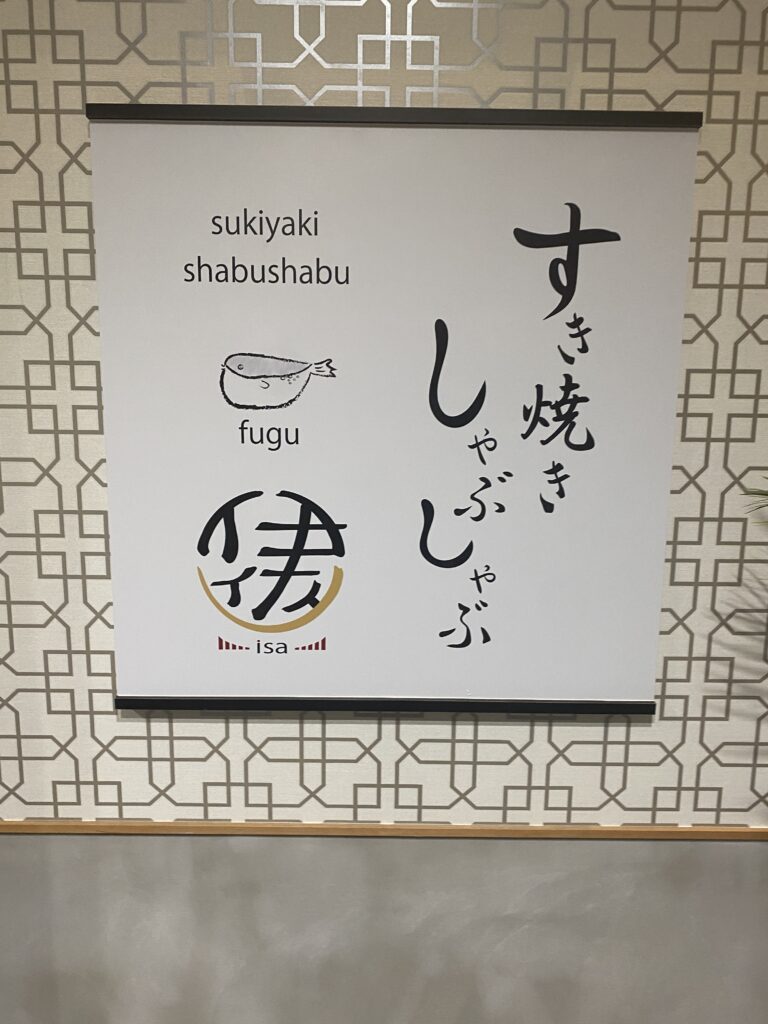 すき焼き
しゃぶしゃぶ
sukiyaki
shabushabu
fugu
isa